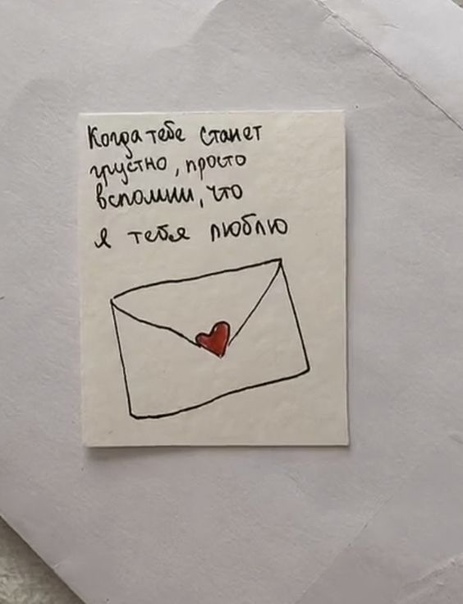 Когда тебе станет
грустно, просто
вспомни, что
я тебя люблю